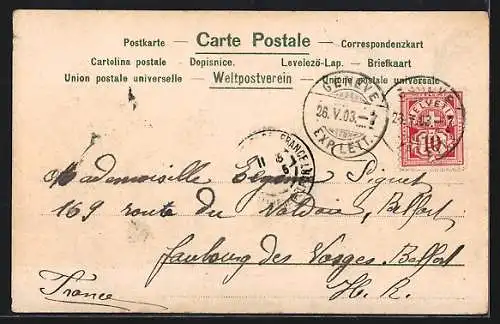 Postkarte — Carte Postale — Correspondenzkart
Cartelina postale — Dopisnice. — Levelező-Lap. — Briefkaart
Union postale universelle — Weltpostverein — Unione postale universale
GENÈVE
26.V.03.
EXP. LETT.
HELVETIA
10
FRANCE
Mademoiselle Piguet
169 route du Valdoie, Belfort
Faubourg des Vosges Belfort
H. R.
France